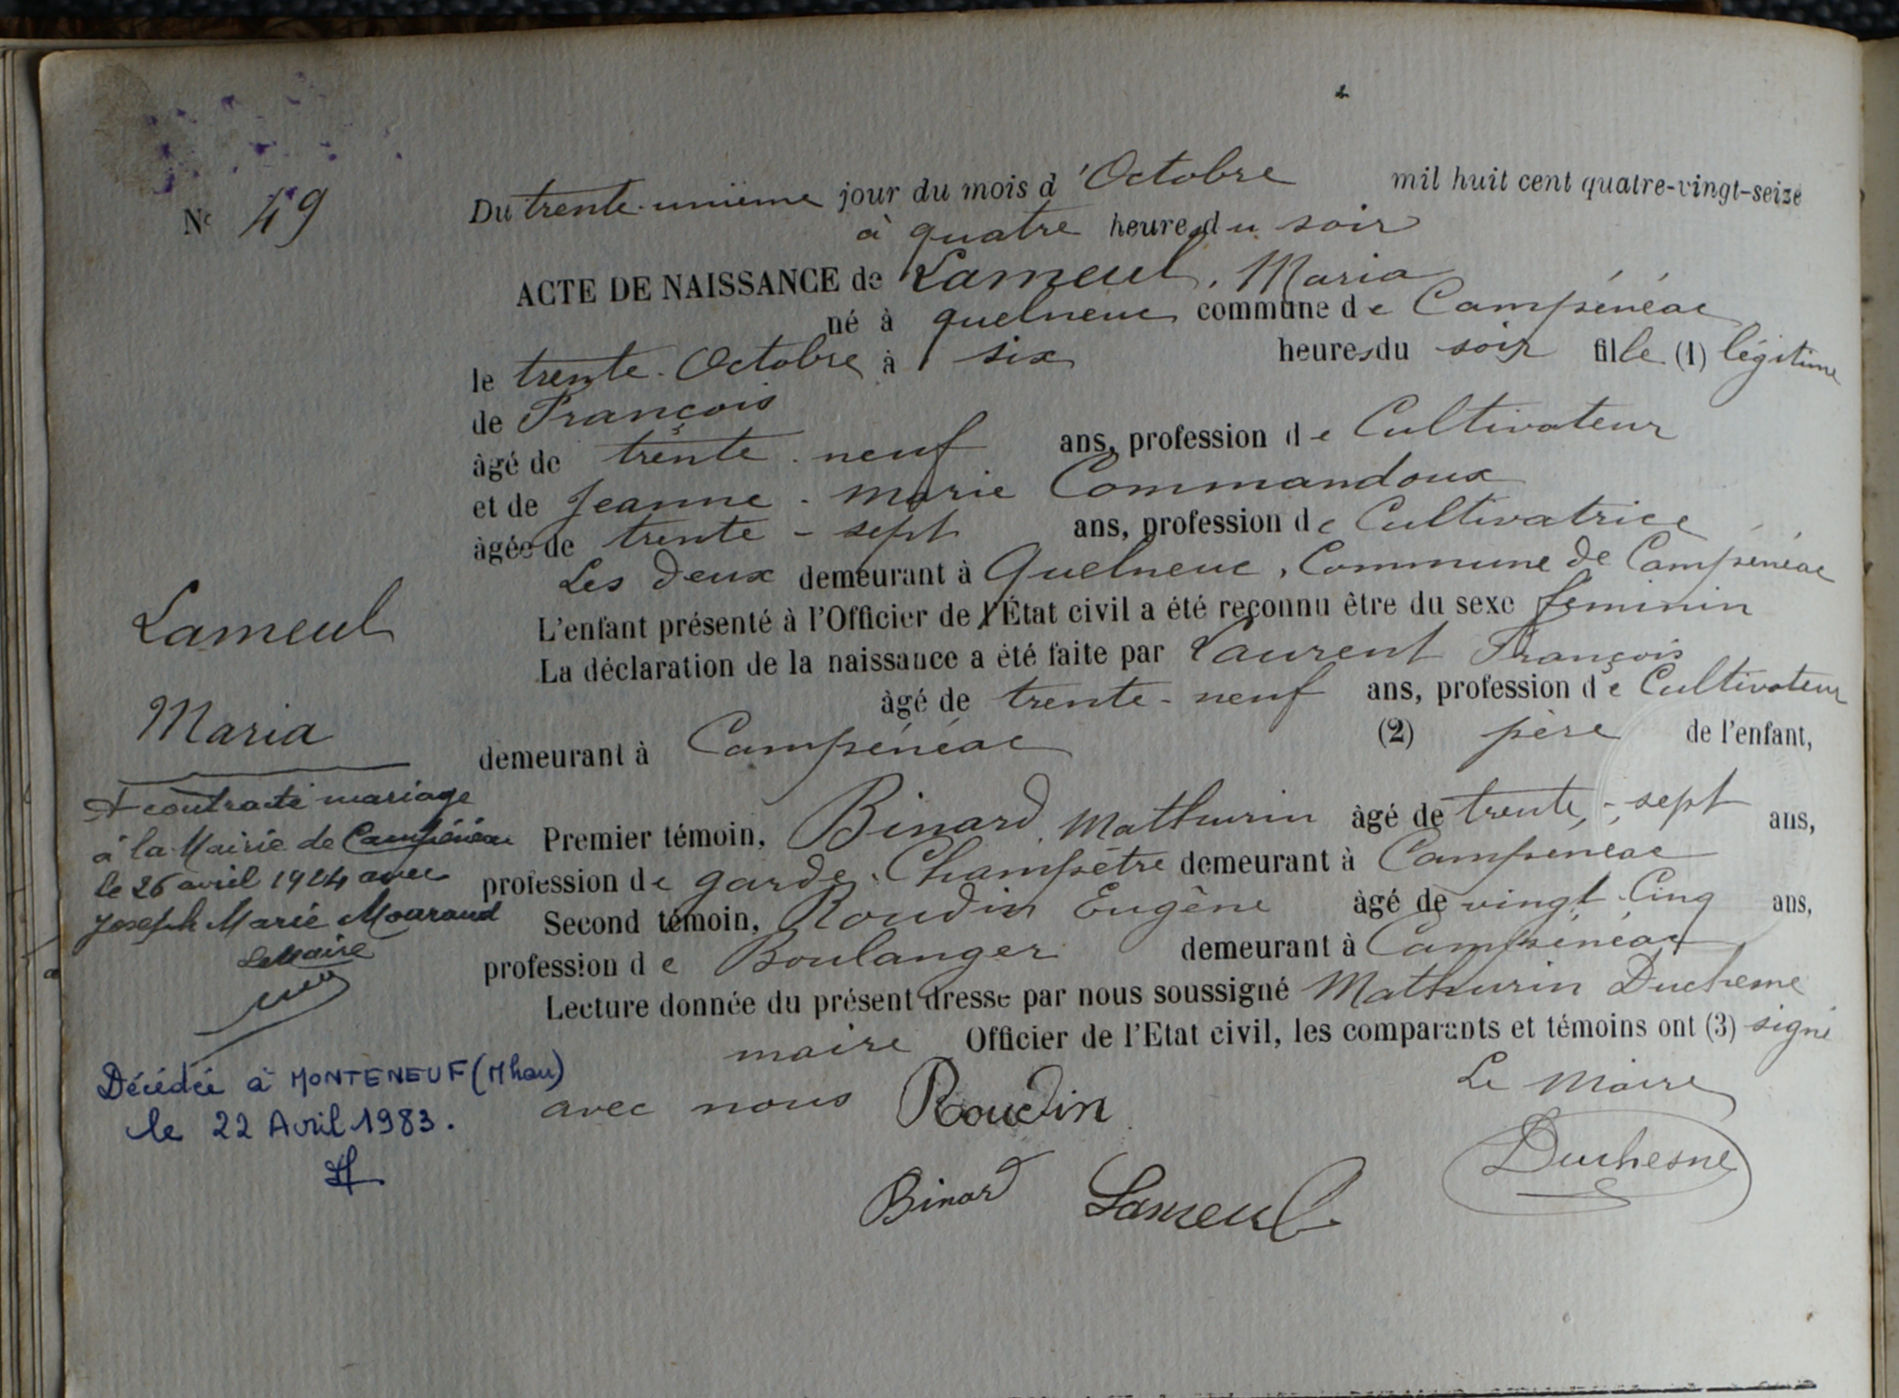 N° 49
Du trente-unième jour du mois d'Octobre mil huit cent quatre-vingt-seize
à quatre heures du soir
ACTE DE NAISSANCE de Lameul, Maria
né à quelneuc commune de Campénéac
le trente Octobre à six heures du soir fille (1) légitime
de François
âgé de trente-neuf ans, profession de Cultivateur
et de Jeanne-Marie Commandoux
âgée de trente-sept ans, profession de Cultivatrice
Les deux demeurant à Quelneuc, Commune de Campénéac
L'enfant présenté à l'Officier de l'État civil a été reçonnu être du sexe féminin
La déclaration de la naissance a été faite par François
âgé de trente-neuf ans, profession de Cultivateur
demeurant à Campénéac (2) père de l'enfant,
Premier témoin, Binard, Mathurin âgé de trente-sept ans,
profession de garde-Champêtre demeurant à Campénéac
Second témoin, Roudin Eugène âgé de vingt-Cinq ans,
profession de Boulanger demeurant à Campénéac
Lecture donnée du présent dresse par nous soussigné Mathurin Duchesne
maire Officier de l'Etat civil, les comparants et témoins ont (3) signé
avec nous
Roudin
Le Maire
Duchesne
Binard
Lameul
Lameul
Maria
A contracté mariage
à la Mairie de Campénéac
le 26 avril 1924 avec
Joseph Marie Mouraud
Le Maire
Décédée à MONTENEUF (Mhan)
le 22 Avril 1983.